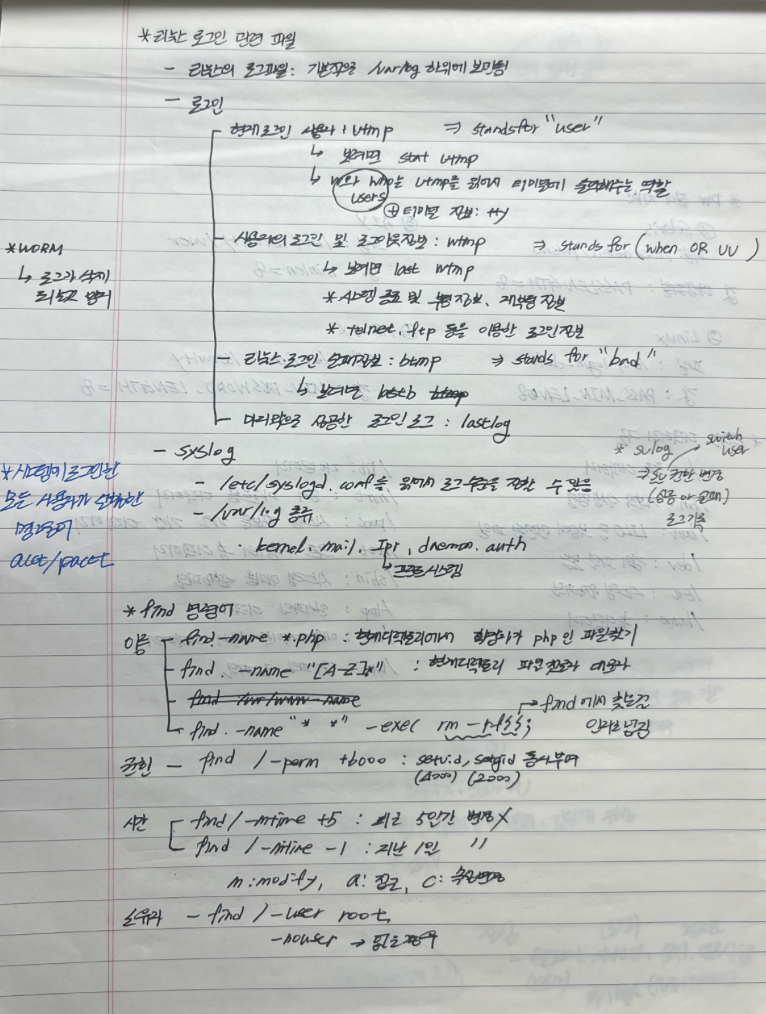 * 리눅스 로그인 관련 파일
- 리눅스의 로그파일: 기본적으로 /var/log 하위에 보관됨
- 로그인
현재 로그인 사용자 : utmp ⇒ stands for "user"
↳ 보려면 stat utmp
↳ w와 who는 utmp를 읽어서 터미널에 출력해주는 역할
users
⊕ 터미널 정보: tty
* WORM
↳ 로그가 삭제
되는것 방지
사용자의 로그인 및 로그아웃정보 : wtmp ⇒ stands for (when OR UU)
↳ 보려면 last wtmp
* 시스템 종료 및 부팅정보, 재부팅 정보
* telnet, ftp 등을 이용한 로그인정보
리눅스 로그인 실패정보 : btmp ⇒ stands for "bad"
↳ 보려면 lastb btmp
마지막으로 성공한 로그인 로그 : lastlog
- syslog
* sulog → switch user
⇒ su 권한 변경
(성공 or 실패)
로그기록
- /etc/syslogd.conf을 읽어서 로그수준을 정할 수 있음
- /var/log 종류
· kernel, mail, lpr, daemon, auth
↳ 프린트시스템
* 시스템에 로그인한
모든 사용자가 실행한
명령어
acct/pacct
* find 명령어
이름 - find -name *.php : 현재디렉토리에서 확장자가 php인 파일찾기
find . -name "[A-Z]*" : 현재디렉토리 파일 첫글자 대문자
find /var/www -name
find . -name "* *" -exec rm -rf {} \; → find에서 찾은걸
인자로 넘김
권한 - find / -perm +6000 : setuid, setgid 동시부여
(4000) (2000)
시간 - find / -mtime +5 : 최근 5일간 변경X
find / -mtime -1 : 지난 1일 "
m : modify, a : 접근, c : 속성변경
소유자 - find / -user root,
-nouser →